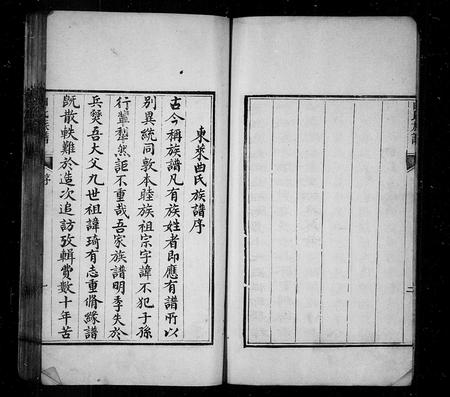 東萊曲氏族譜序
古今稱族譜凡有族姓者即應有譜所以
別異統同敦本睦族祖宗字諱不犯子孫
行輩犂然詎不重哉吾家族譜明季失於
兵燹吾大父九世祖諱琦有志重脩緣譜
既散軼難於造次追訪攷輯費數十年苦
氏族譜
序
一
二